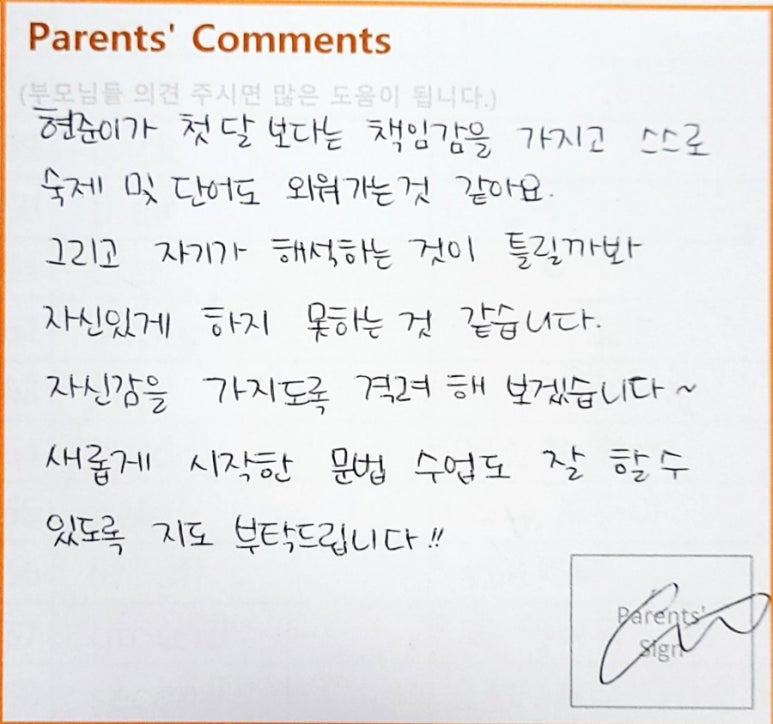 Parents' Comments
(부모님들 의견 주시면 많은 도움이 됩니다.)
현준이가 첫 달 보다는 책임감을 가지고 스스로
숙제 및 단어도 외워가는것 같아요.
그리고 자기가 해석하는 것이 틀릴까봐
자신있게 하지 못하는 것 같습니다.
자신감을 가지도록 격려 해 보겠습니다~
새롭게 시작한 문법 수업도 잘 할 수
있도록 지도 부탁드립니다!!
Parents'
Sign